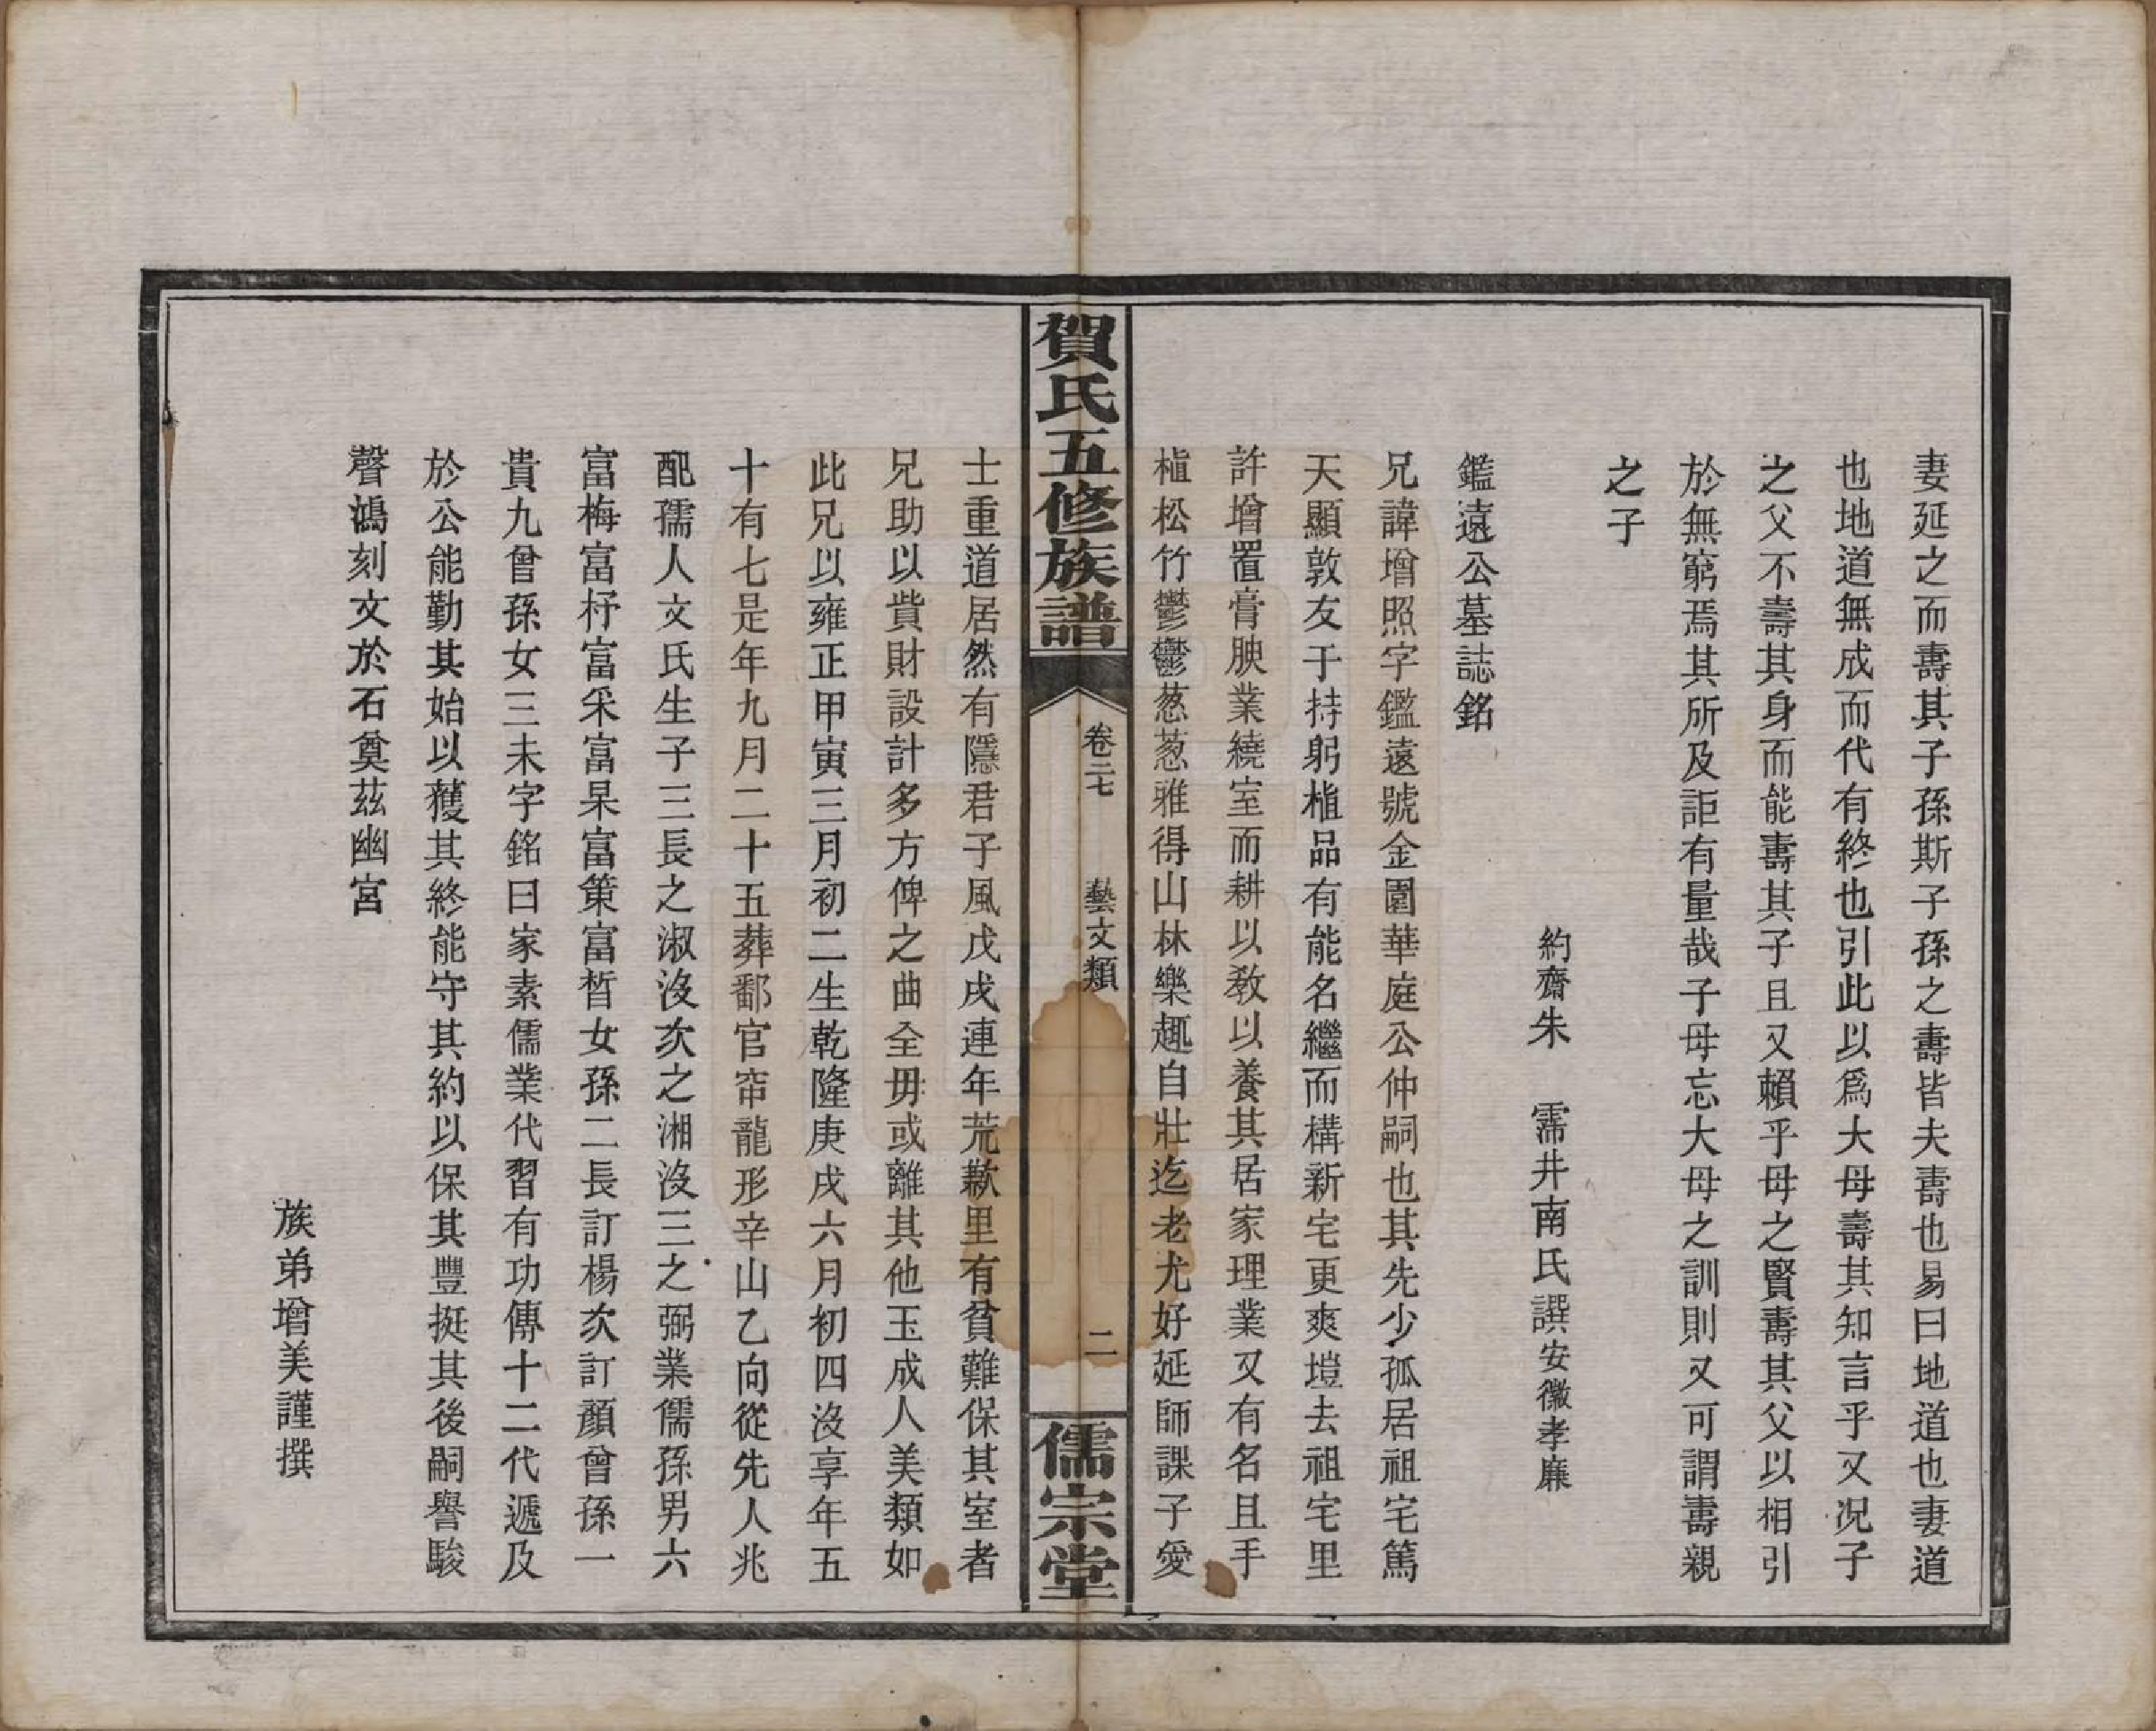 妻延之而壽其子孫斯子孫之壽皆夫壽也易曰地道也妻道
也地道無成而代有終也引此以爲大母壽其知言乎又况子
之父不壽其身而能壽其子且又賴乎母之賢壽其父以相引
於無窮焉其所及詎有量哉子母忘大母之訓則又可謂壽親
之子
約齋朱　霈井南氏譔安徽孝廉
鑑遠公墓誌銘
兄諱增照字鑑遠號金園華庭公仲嗣也其先少孤居祖宅篤
天顯敦友于持躬植品有能名繼而構新宅更爽塏去祖宅里
許增置膏腴業繞室而耕以教以養其居家理業又有名且手
植松竹鬱鬱葱葱雅得山林樂趣自壯迄老尤好延師課子愛
賀氏五修族譜
卷二七
藝文類
二
儒宗堂
士重道居然有隱君子風戊戌連年荒歉里有貧難保其室者
兄助以貲財設計多方俾之曲全毋或離其他玉成人美類如
此兄以雍正甲寅三月初二生乾隆庚戌六月初四沒享年五
十有七是年九月二十五葬鄱官帘龍形辛山乙向從先人兆
配孺人文氏生子三長之淑沒次之湘沒三之弼業儒孫男六
富梅富杼富采富杲富策富晳女孫二長訂楊次訂顏曾孫一
貴九曾孫女三未字銘曰家素儒業代習有功傳十二代遞及
於公能勤其始以獲其終能守其約以保其豐挺其後嗣譽駿
聲鴻刻文於石奠茲幽宮
族弟增美謹撰